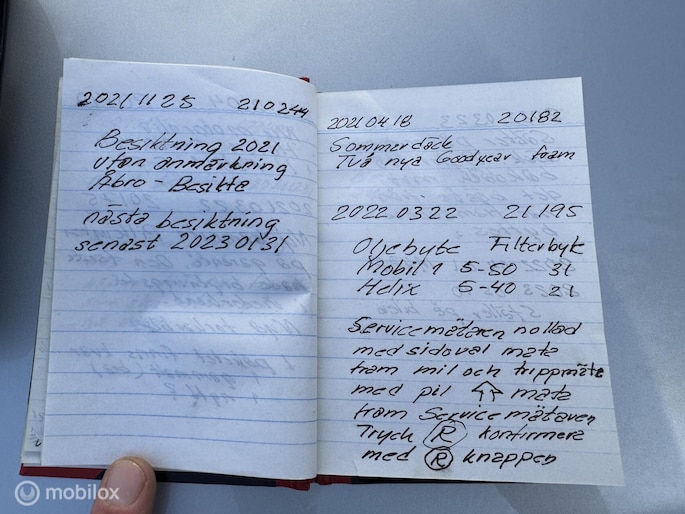 2021 11 25 210244
Besiktning 2021
utan anmärkning
Åbro - Besikta
nästa besiktning
senast 2023 01 31
2021 04 18 20182
Sommerdäck
Två nya Goodyear fram
2022 03 22 21195
Oljebyte Filterbyte
Mobil 1 5-50 3l
Helix 5-40 2l
Servicemätaren nollad
med sidoval mata
fram mil och trippmäta
med pil ⇧ mata
fram Servicemätaren
Tryck Ⓡ konfirmera
med Ⓡ knappen
mobilox